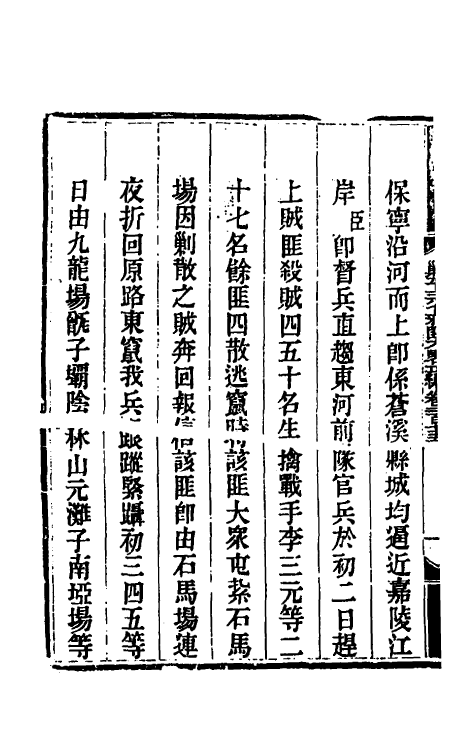 保寧沿河而上卽係蒼溪縣城均逼近嘉陵江
岸臣卽督兵直趨東河前隊官兵於初二日趕
上賊匪殺賊四五十名生擒戰手李三元等二
十七名餘匪四散逃竄時該匪大衆屯紮石馬
場因剿散之賊奔回報信該匪卽由石馬場連
夜折回原路東竄我兵跟蹤緊躡初三四五等
日由九龍場甑子壩陰林山元灘子南埡場等